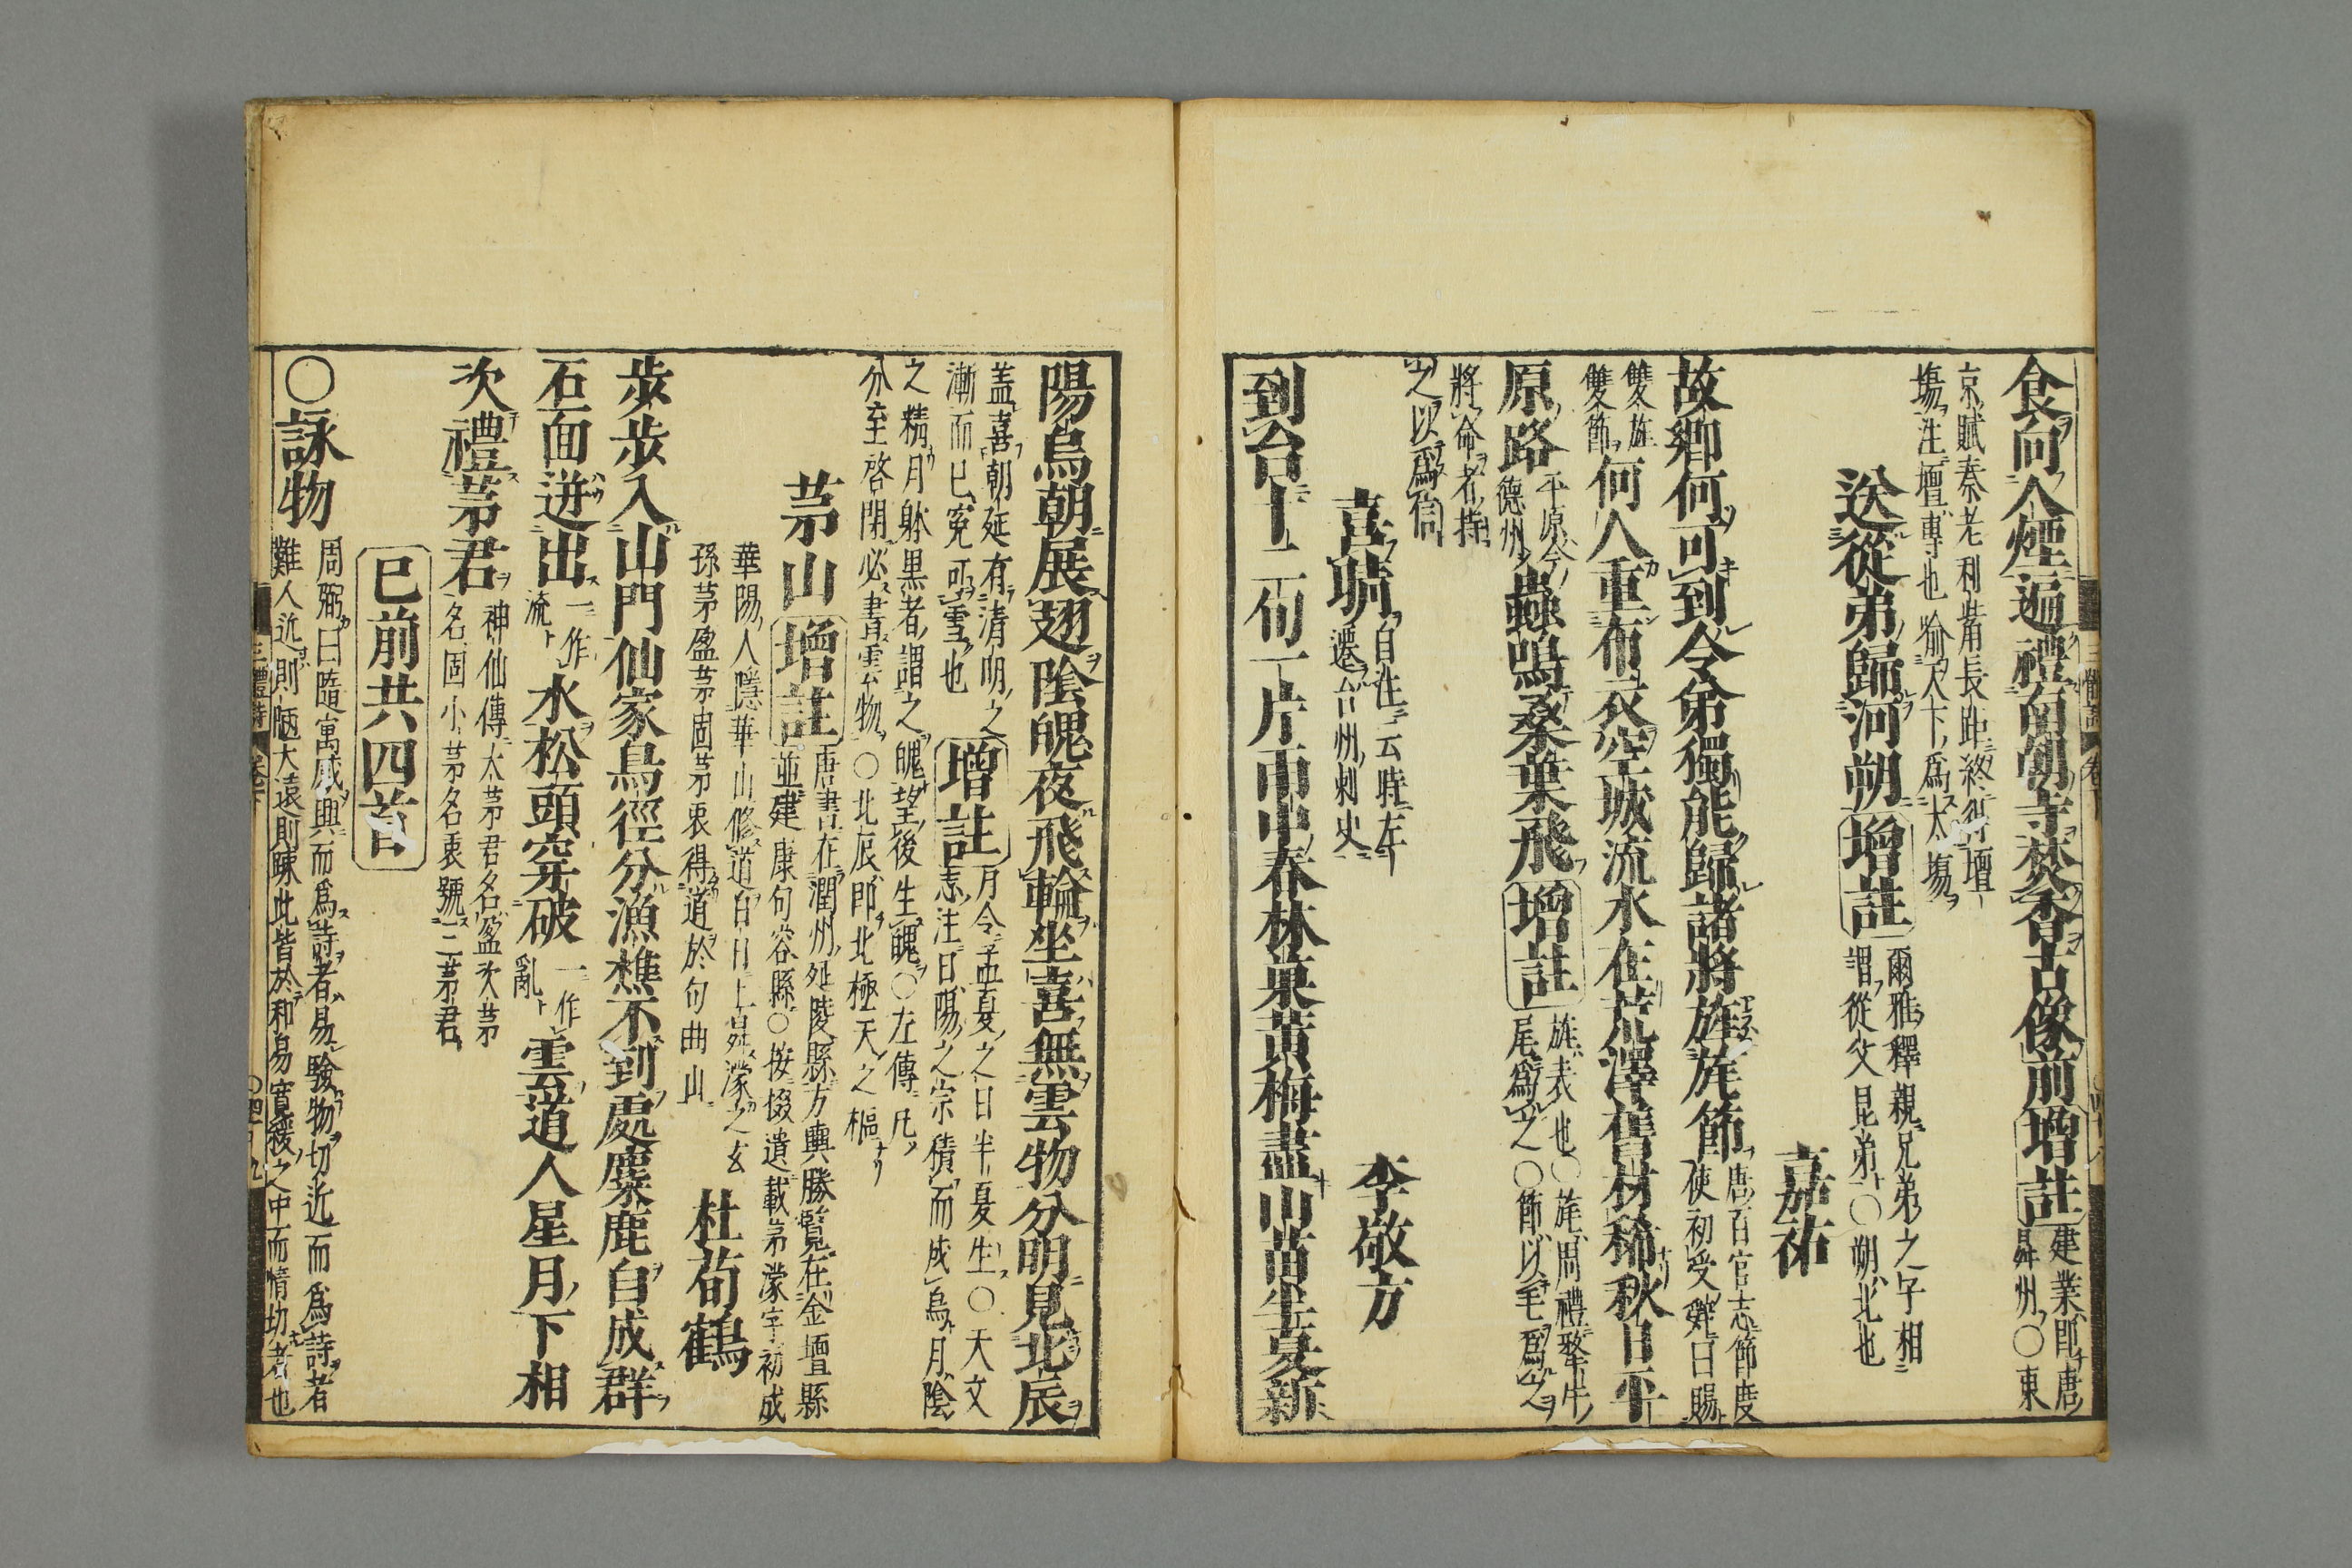 食向人煙遍禮南朝寺焚香古像前增註建業卽唐
昇州〇東
京賦秦老利觜長距終得壇
塲注壇專也喻天下爲大塲
送從弟歸河朔增註爾雅釋親兄弟之子相
謂從父昆弟〇朔北也
嘉祐
故鄉何可到令弟獨能歸諸將旌旄節唐百官志節度
使初受辭日賜
雙旌
雙節何人重布衣空城流水在荒澤舊村稀秋日平
原路平原今
德州蟲鳴桑葉飛增註旌表也〇旄周禮犛牛
尾爲之〇節以毛爲之
將命者持
之以爲信
喜晴自注云時左
遷台州刺史
李敬方
到台十二旬一片雨中春林菓黃梅盡山苗半夏新
陽烏朝展翅陰魄夜飛輪坐喜無雲物分明見北辰
蓋喜朝延有清明之
漸而已冤可雪也增註月令孟夏之日半夏生〇天文
志注日陽之宗積而成烏月陰
之精月躰黒者謂之魄望後生魄〇左傳凡
分至啓閉必書雲物〇北辰卽北極天之樞
茅山增註唐書在潤州延陵縣方輿勝覽在金壇縣
並建康句容縣〇按掇遺載茅濛字初成
華陽人隱華山修道白日上昇濛之玄
孫茅盈茅固茅衷得道於句曲山
杜荀鶴
步步入山門仙家鳥徑分漁樵不到處麋鹿自成群
石面迸出一作
流水松頭穿破一作
亂雲道人星月下相
次禮茅君神仙傳大茅君名盈次茅
名固小茅名衷號三茅君
已前共四首
〇詠物周弼曰隨寓感興而爲詩者易驗物切近而爲詩者
難人近則陋大遠則疎此皆於和易寛緩之中而情切者也